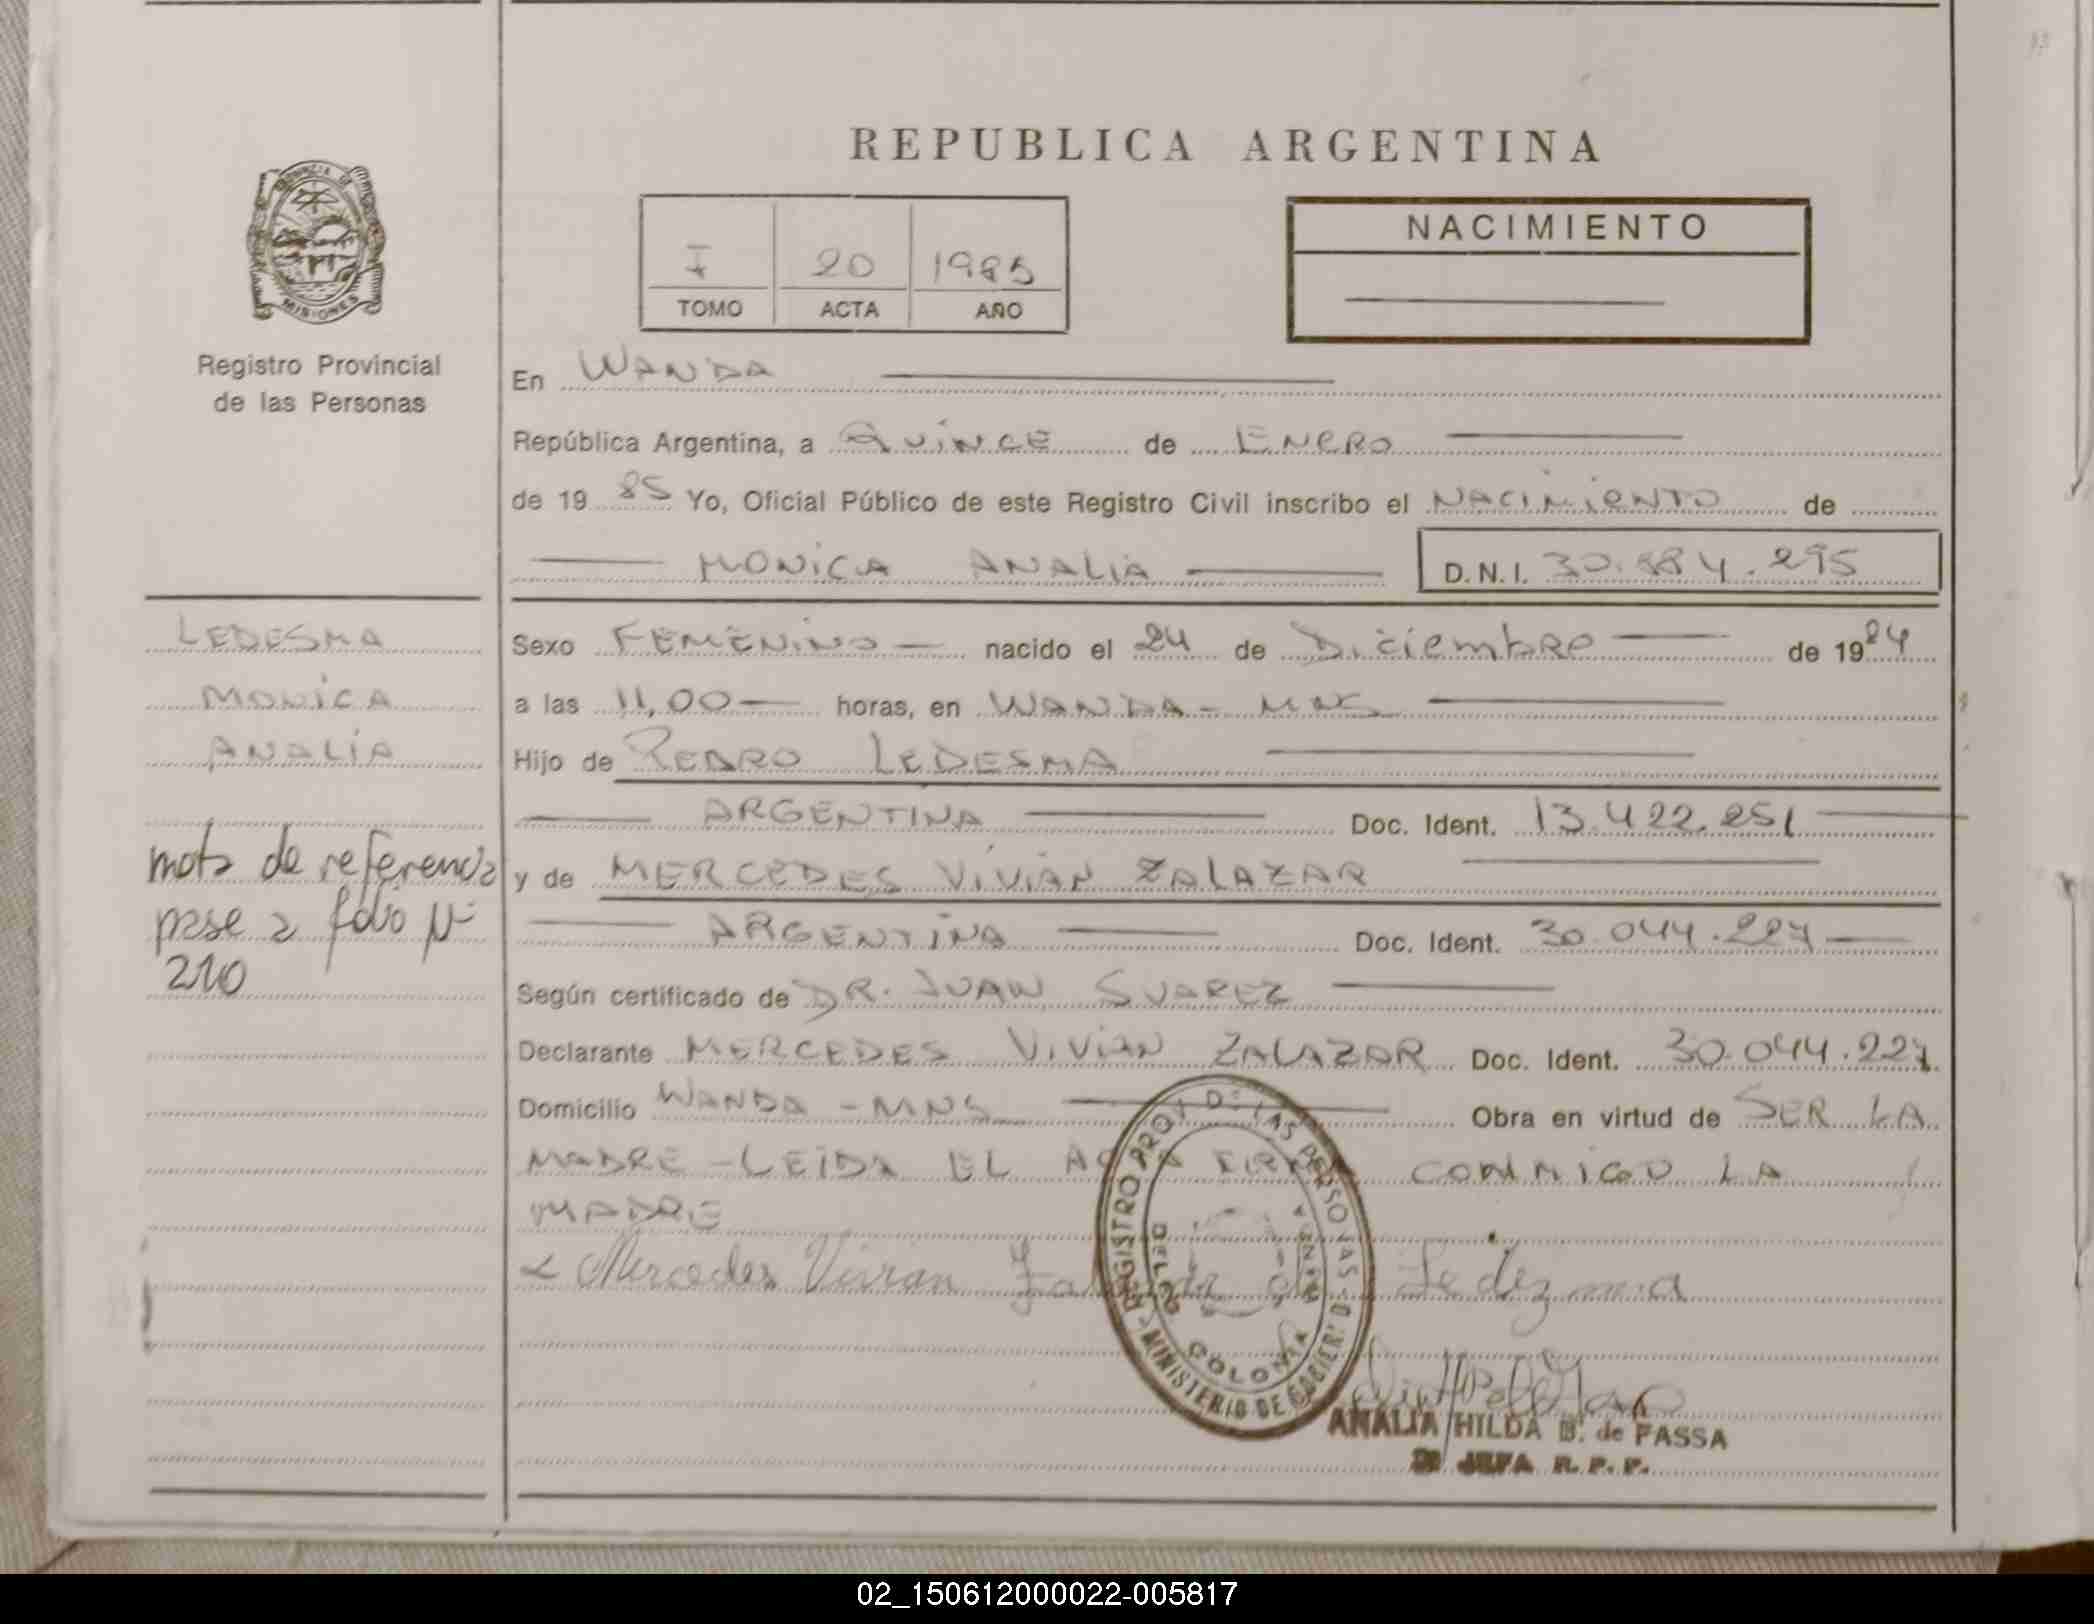 REPUBLICA ARGENTINA
PROVINCIA DE MISIONES
Registro Provincial
de las Personas
I 20 1985
TOMO ACTA AÑO
NACIMIENTO
En WANDA
República Argentina, a QUINCE de ENERO
de 19 85 Yo, Oficial Público de este Registro Civil inscribo el NACIMIENTO de
MONICA ANALIA D.N.I. 30.884.295
LEDESMA
MONICA
ANALIA
nota de referencia
pase a folio Nº
210
Sexo FEMENINO nacido el 24 de Diciembre de 19 84
a las 11,00 horas, en WANDA - MNS
Hijo de PEDRO LEDESMA
ARGENTINA Doc. Ident. 13.422.251
y de MERCEDES VIVIAN ZALAZAR
ARGENTINA Doc. Ident. 30.044.227
Según certificado de DR. JUAN SUAREZ
Declarante MERCEDES VIVIAN ZALAZAR Doc. Ident. 30.044.227
Domicilio WANDA - MNS Obra en virtud de SER LA
MADRE - LEIDA EL ACTA FIRMA CONMIGO LA
MADRE
Mercedes Vivian Zalazar de Ledezma
REGISTRO PROV. DE LAS PERSONAS
MINISTERIO DE GOBIERNO
COLONIA
ANALIA HILDA B. de FASSA
JEFA R. P. P.
02_150612000022-005817